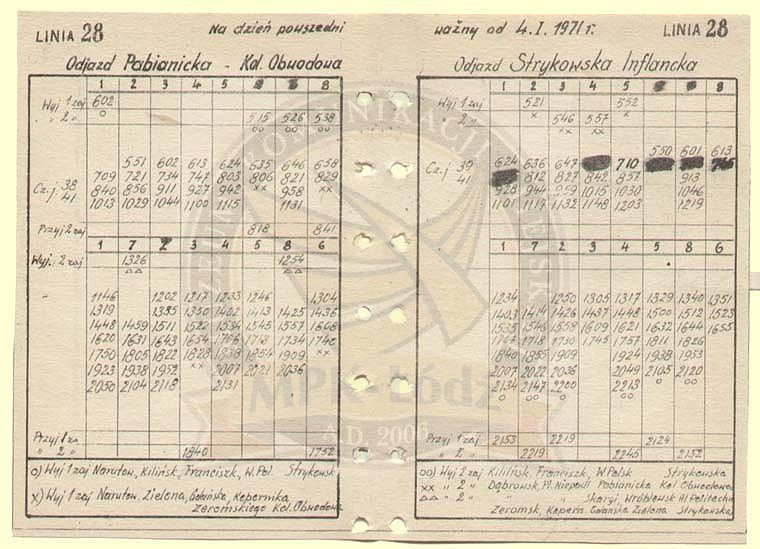 LINIA 28 Na dzień powszedni ważny od 4.I.1971 r. LINIA 28
Odjazd Pabianicka - Kol. Obwodowa
1 2 3 4 5 8
Wyj 1 zaj 602
" 2 " 515 526 538
o oo oo oo
551 602 613 624 635 646 658
709 721 734 747 803 806 821 829
Cz.j 38 840 856 911 927 942 xx 958 xx
41 1013 1029 1044 1100 1115 1131
Przyj 2 zaj 818 841
1 7 2 3 4 5 8 6
Wyj. 2 zaj 1326 1254
△△ △△
" 1146 1202 1217 1233 1246 1304
1319 1335 1350 1402 1413 1425 1436
1448 1459 1511 1522 1534 1545 1557 1608
1620 1631 1643 1654 1706 1718 1734 1746
1750 1805 1822 1828 1838 1854 1909 xx
1923 1938 1952 xx 2007 2021 2036
2050 2104 2118 2131
Przyj 1 za
" 2 " 1840 1752
o) Wyj 1 zaj Narutow, Kilińsk, Franciszk, W.Pol. Strykowsk
x) Wyj 1 zaj Narutow. Zielona, Gdańska, Kopernika,
Żeromskiego Kol. Obwodowa
Odjazd Strykowska Inflancka
1 2 3 4 5 8
Wyj 1 zaj 521 552
" 2 " x 546 557 x
xx xx
550 601 613
624 636 647 710
Cz. j 39 812 827 842 857 913
41 928 944 959 1015 1030 1046
1101 1117 1132 1148 1203 1219
1 7 2 3 4 5 8 6
1234 1250 1305 1317 1329 1340 1351
1403 1414 1426 1437 1448 1500 1512 1523
1535 1546 1558 1609 1621 1632 1644 1655
1707 1718 1730 1745 1757 1811 1826
1840 1855 1909 1924 1938 1953
2007 2022 2036 2049 2105 2120
2134 2147 2200 2213 o oo
o oo o oo
Przyj 1 zaj 2153 2219 2124
" 2 " 2219 2245 2152
oo) Wyj 2 zaj Kilińsk, Franciszk, W Polsk Strykowska
xx " 2 " Dąbrowsk, Pl. Niepodl Pabianicka Kol Obwodowa
△△ " 2 " " " Skargi, Wróblewsk Al Politechn
Żeromsk, Kopern. Gdańska Zielona Strykowska
MPK-Łódź
A.D. 2006